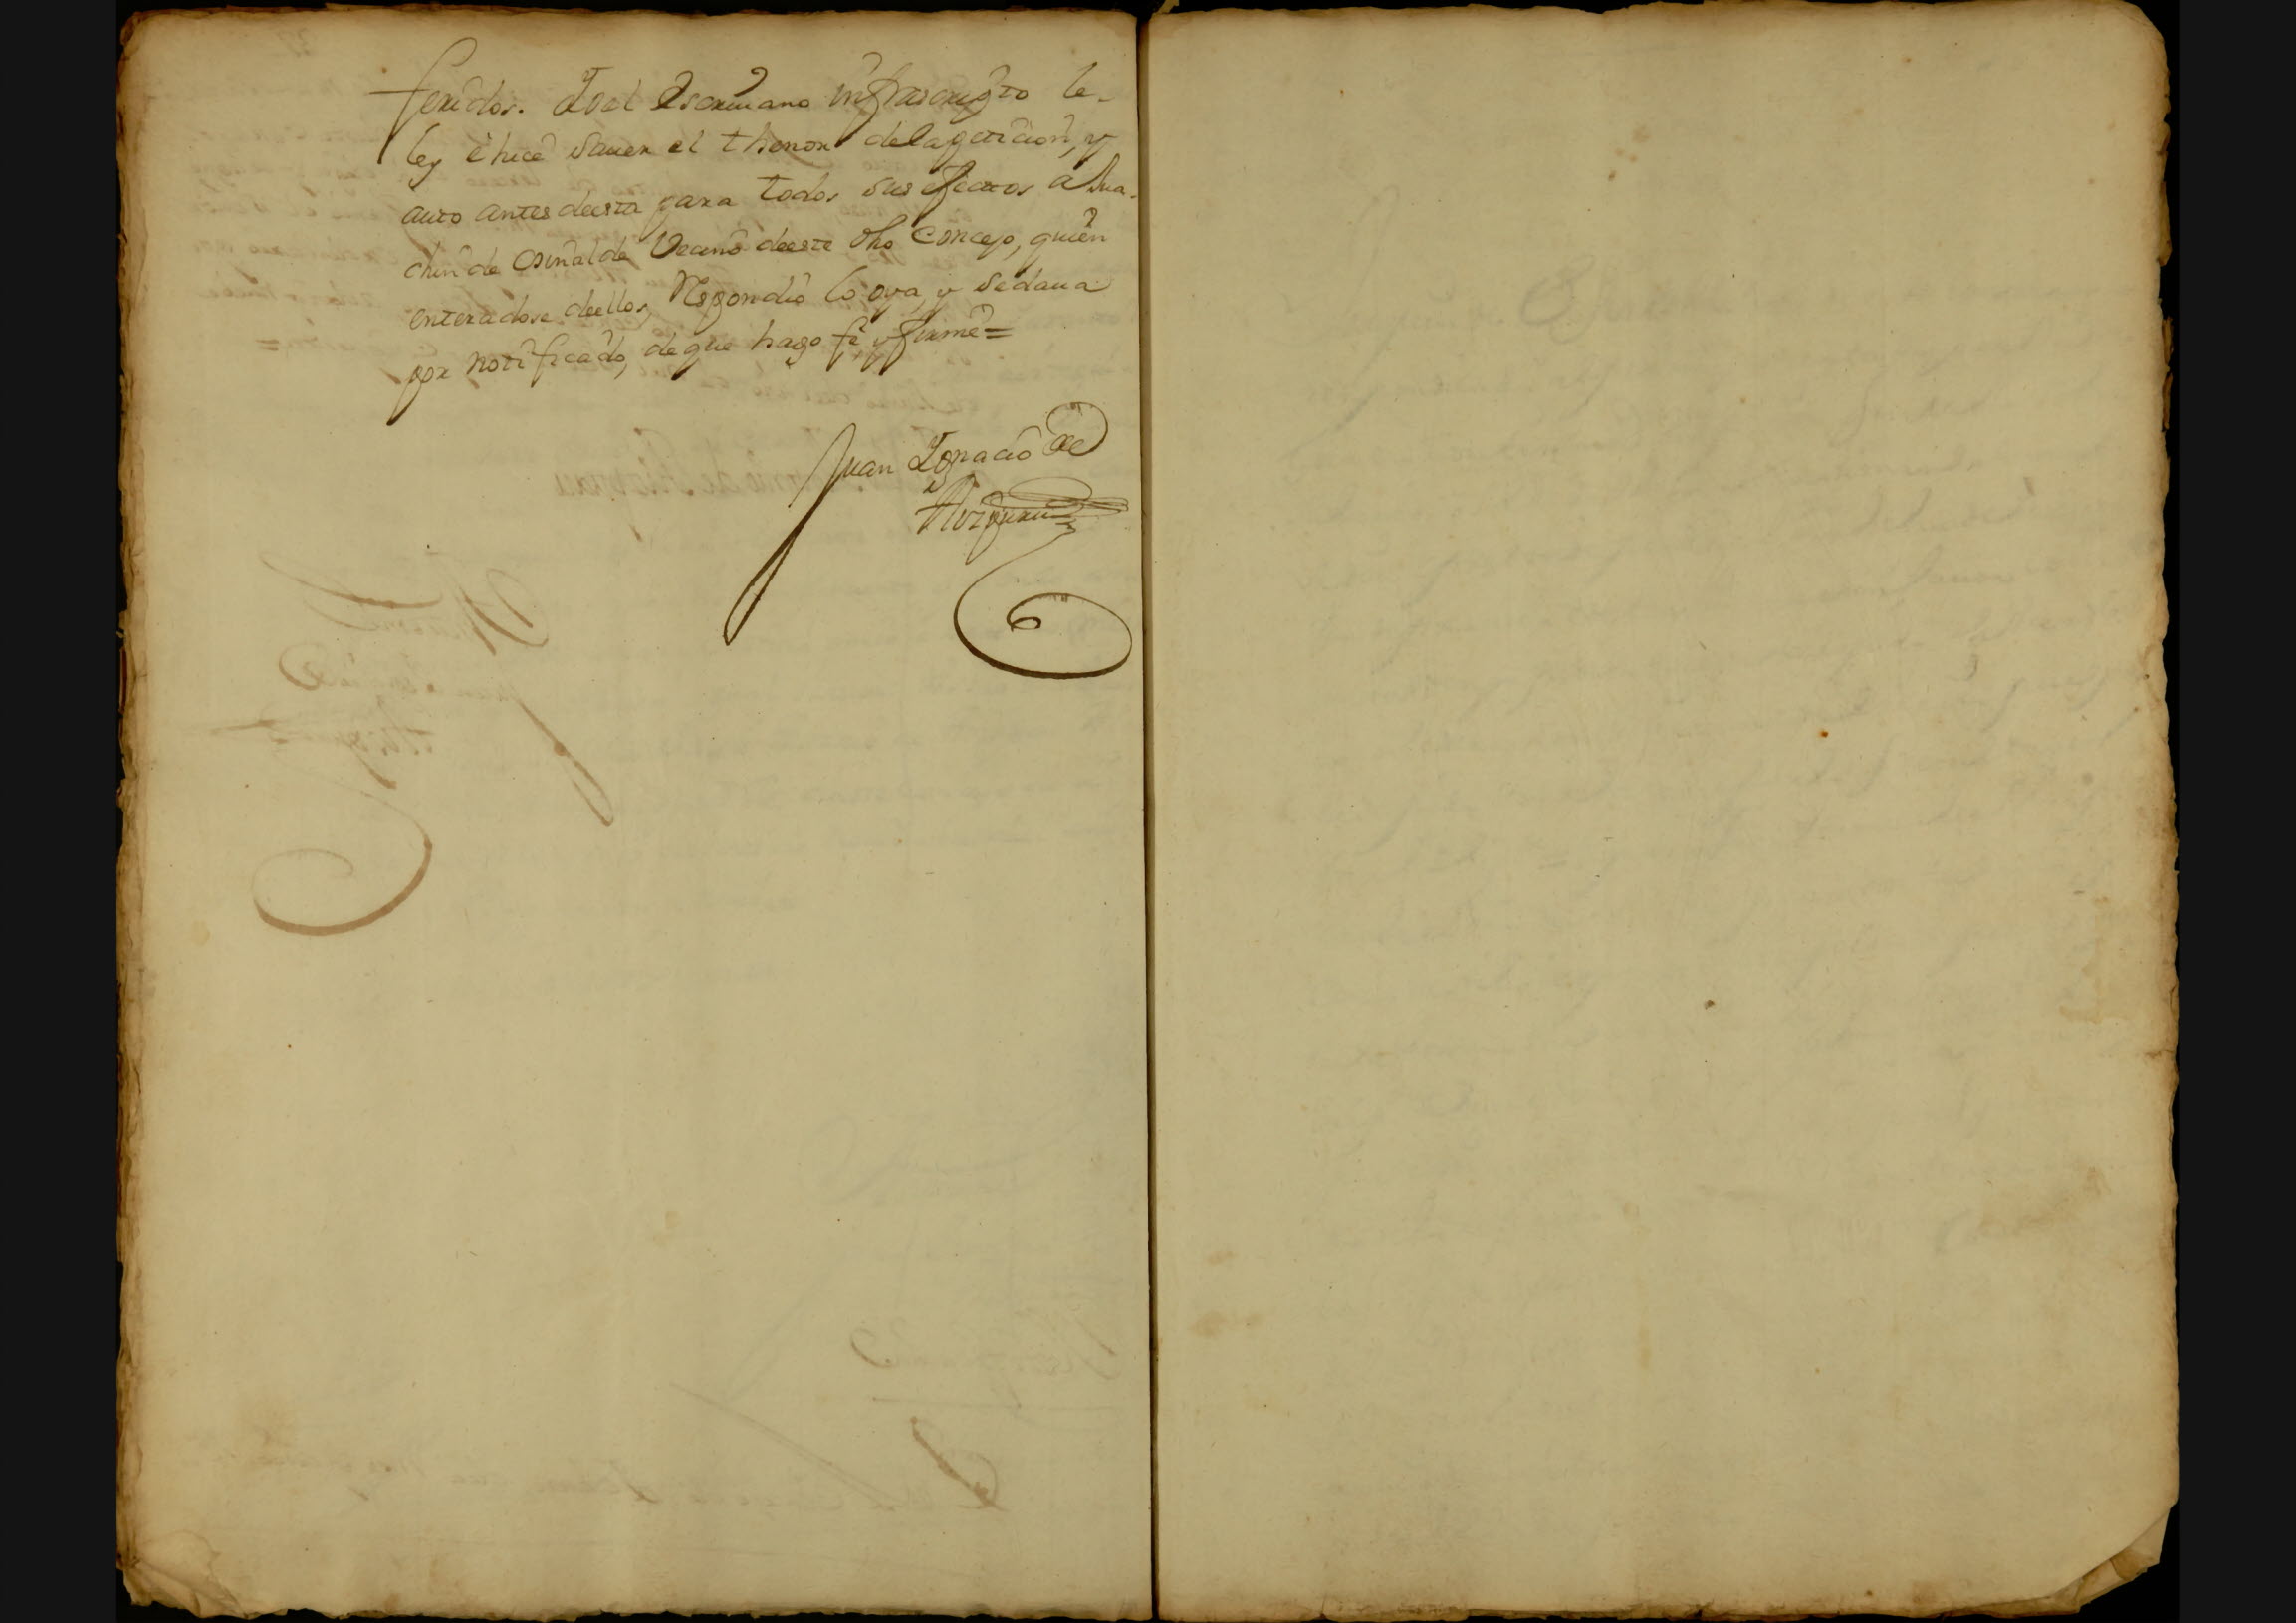 feridos. Yo el Escriuano infrascripto le-
ley è hice sauer el thenor de la peticion, y
auto antes de esta para todos sus efectos a Jua-
chin de Osinalde Vecino de este dho Concejo, quien
enteradose de ellos, Respondiò lo oya, y se daua
por notificado, de que hago fè y firmè =
Juan Ignacio de